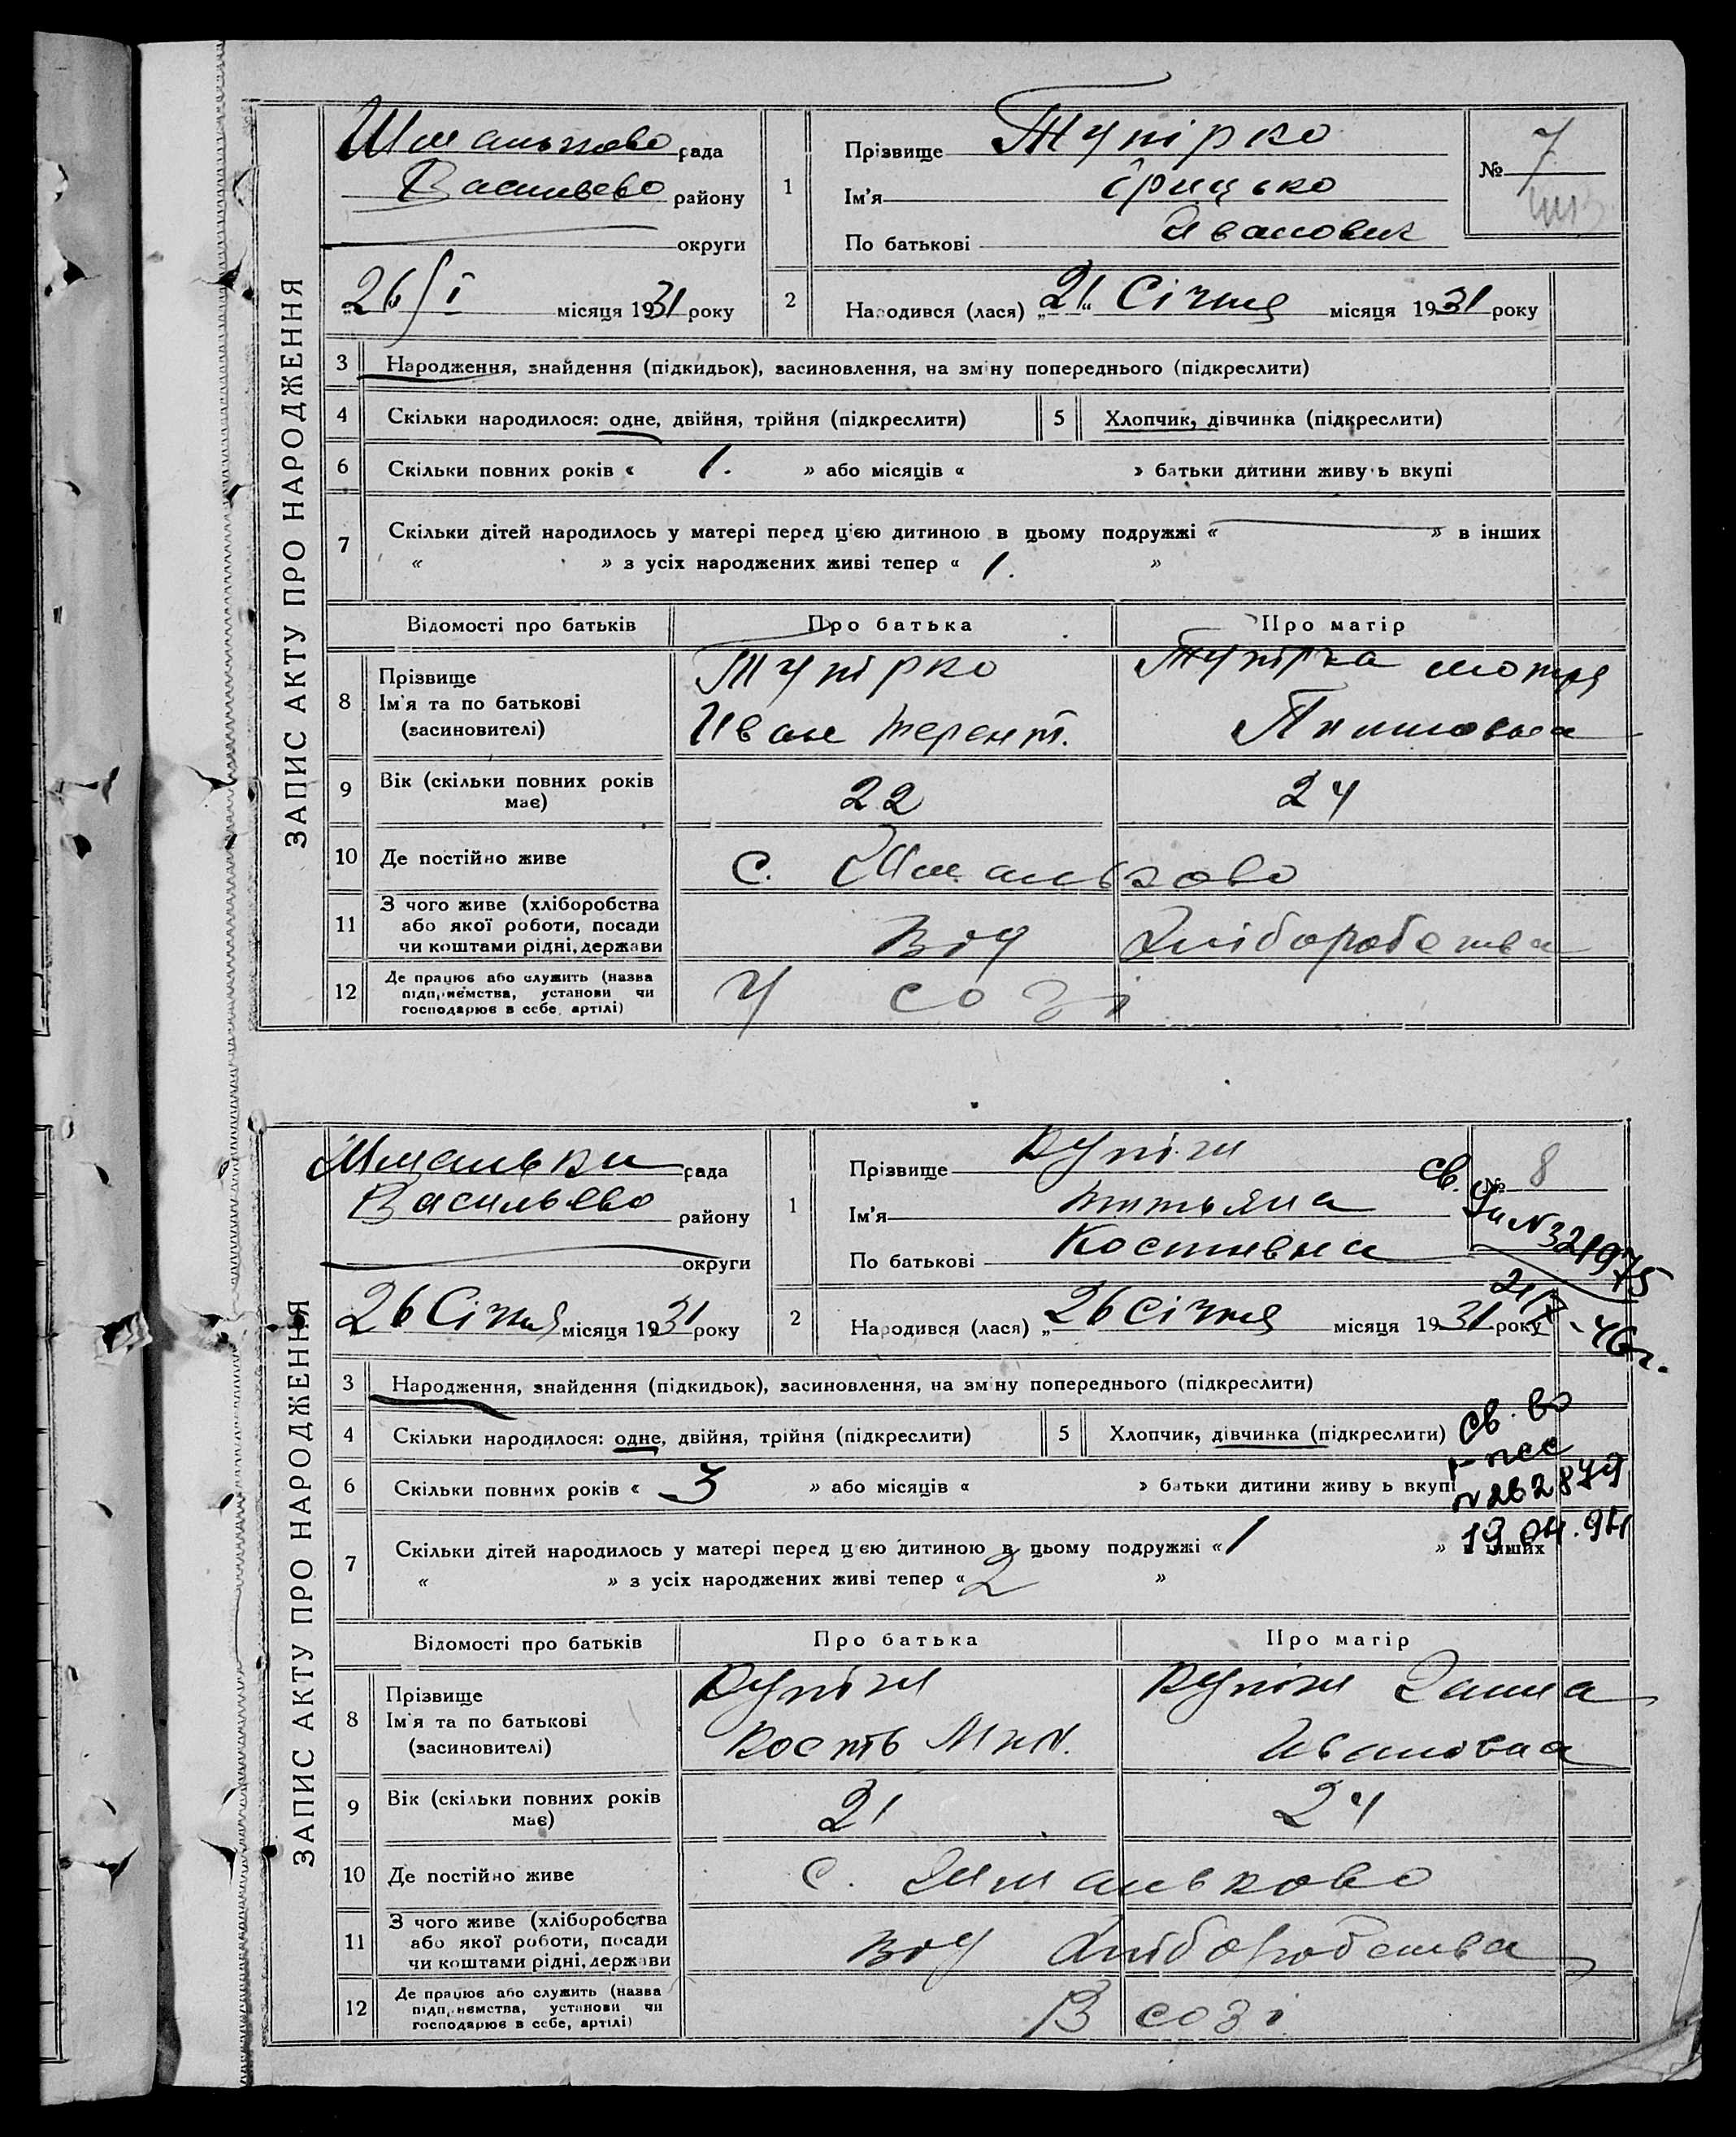 ЗАПИС АКТУ ПРО НАРОДЖЕННЯ
Шманьково рада
Васильево району
округи
26/І місяця 1931 року
1
Прізвище Тупірко
Ім'я Грицько
По батькові Иванович
№ 7
2
Народився (лася) „21“ Січня місяця 1931 року
3 Народження, знайдення (підкидьок), засиновлення, на зміну попереднього (підкреслити)
4 Скільки народилося: одне, двійня, трійня (підкреслити)
5 Хлопчик, дівчинка (підкреслити)
6 Скільки повних років « 1. » або місяців « » батьки дитини живуть вкупі
7 Скільки дітей народилось у матері перед цією дитиною в цьому подружжі « — » в інших
« » з усіх народжених живі тепер « 1. »
Відомості про батьків Про батька Про матір
8 Прізвище
Ім'я та по батькові
(засиновителі)
Тупірко
Иван Терент.
Тупірка Мотря
Пилиповна
9 Вік (скільки повних років має) 22 24
10 Де постійно живе с. Шманьково
11 З чого живе (хліборобства
або якої роботи, посади
чи коштами рідні, держави
Від Хліборобства
12 Де працює або служить (назва
підприємства, установи чи
господарює в себе, артілі)
У созі
ЗАПИС АКТУ ПРО НАРОДЖЕННЯ
Шманьки рада
Васильево району
округи
26 Січня місяця 1931 року
1
Прізвище Купін
Ім'я Титьяна
По батькові Костивна
№ 8
св.
№ 321975
21/V-46г.
2
Народився (лася) „26 Січня місяця 1931 року
3 Народження, знайдення (підкидьок), засиновлення, на зміну попереднього (підкреслити)
4 Скільки народилося: одне, двійня, трійня (підкреслити)
5 Хлопчик, дівчинка (підкреслити)
св. во
№ 262879
19.04.94
6 Скільки повних років « 3 » або місяців « » батьки дитини живуть вкупі
7 Скільки дітей народилось у матері перед цією дитиною в цьому подружжі « 1 » в інших
« » з усіх народжених живі тепер « 2 »
Відомості про батьків Про батька Про матір
8 Прізвище
Ім'я та по батькові
(засиновителі)
Купін
Кость Мик.
Купін Ганна
Ивановна
9 Вік (скільки повних років має) 21 24
10 Де постійно живе с. Шманьково
11 З чого живе (хліборобства
або якої роботи, посади
чи коштами рідні, держави
Від Хліборобства
12 Де працює або служить (назва
підприємства, установи чи
господарює в себе, артілі)
В созі